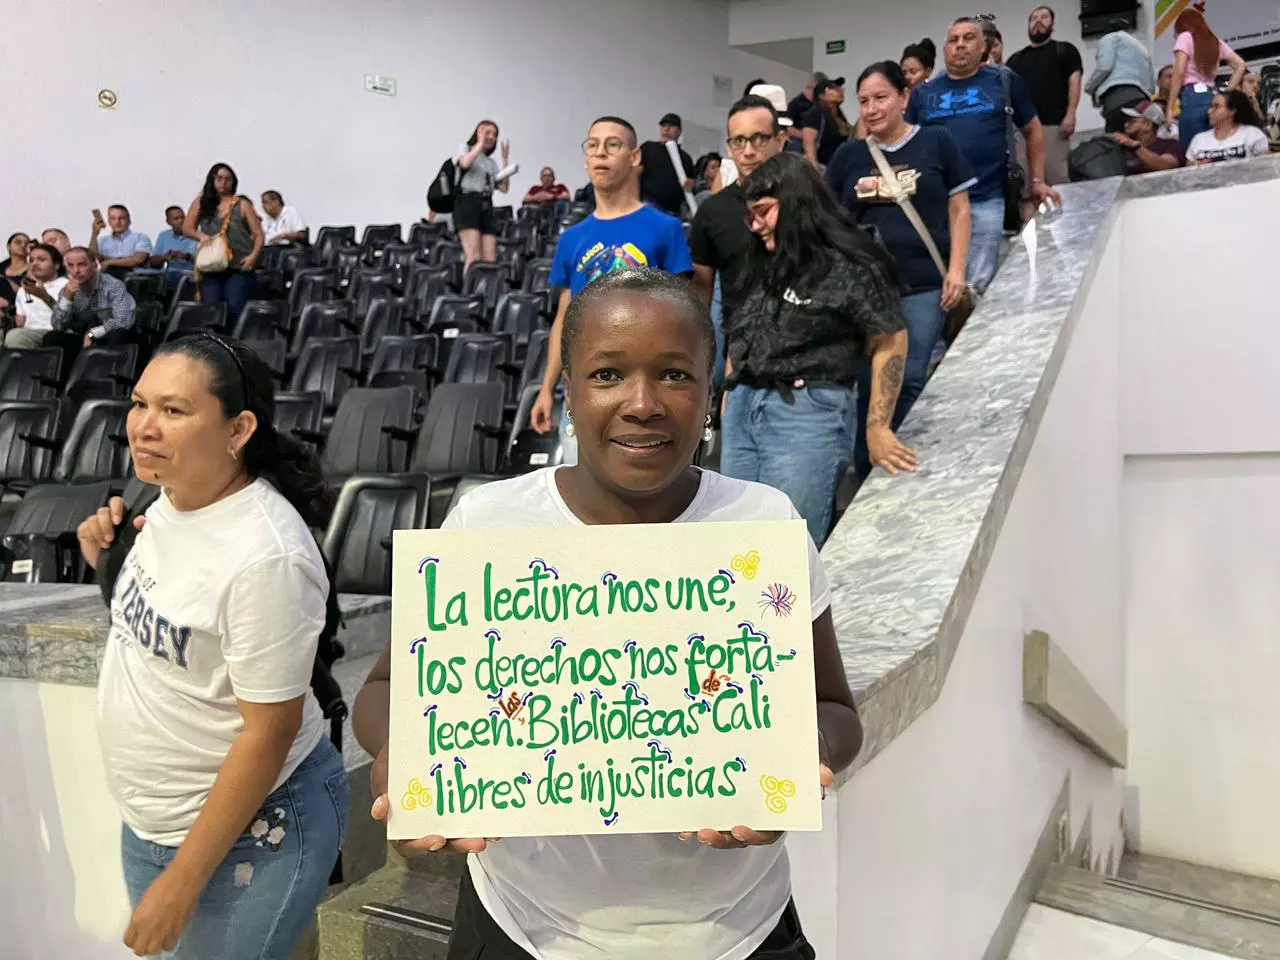 La lectura nos une,
los derechos nos forta-
lecen. las Bibliotecas de Cali
libres de injusticias
JERSEY
AÑOS